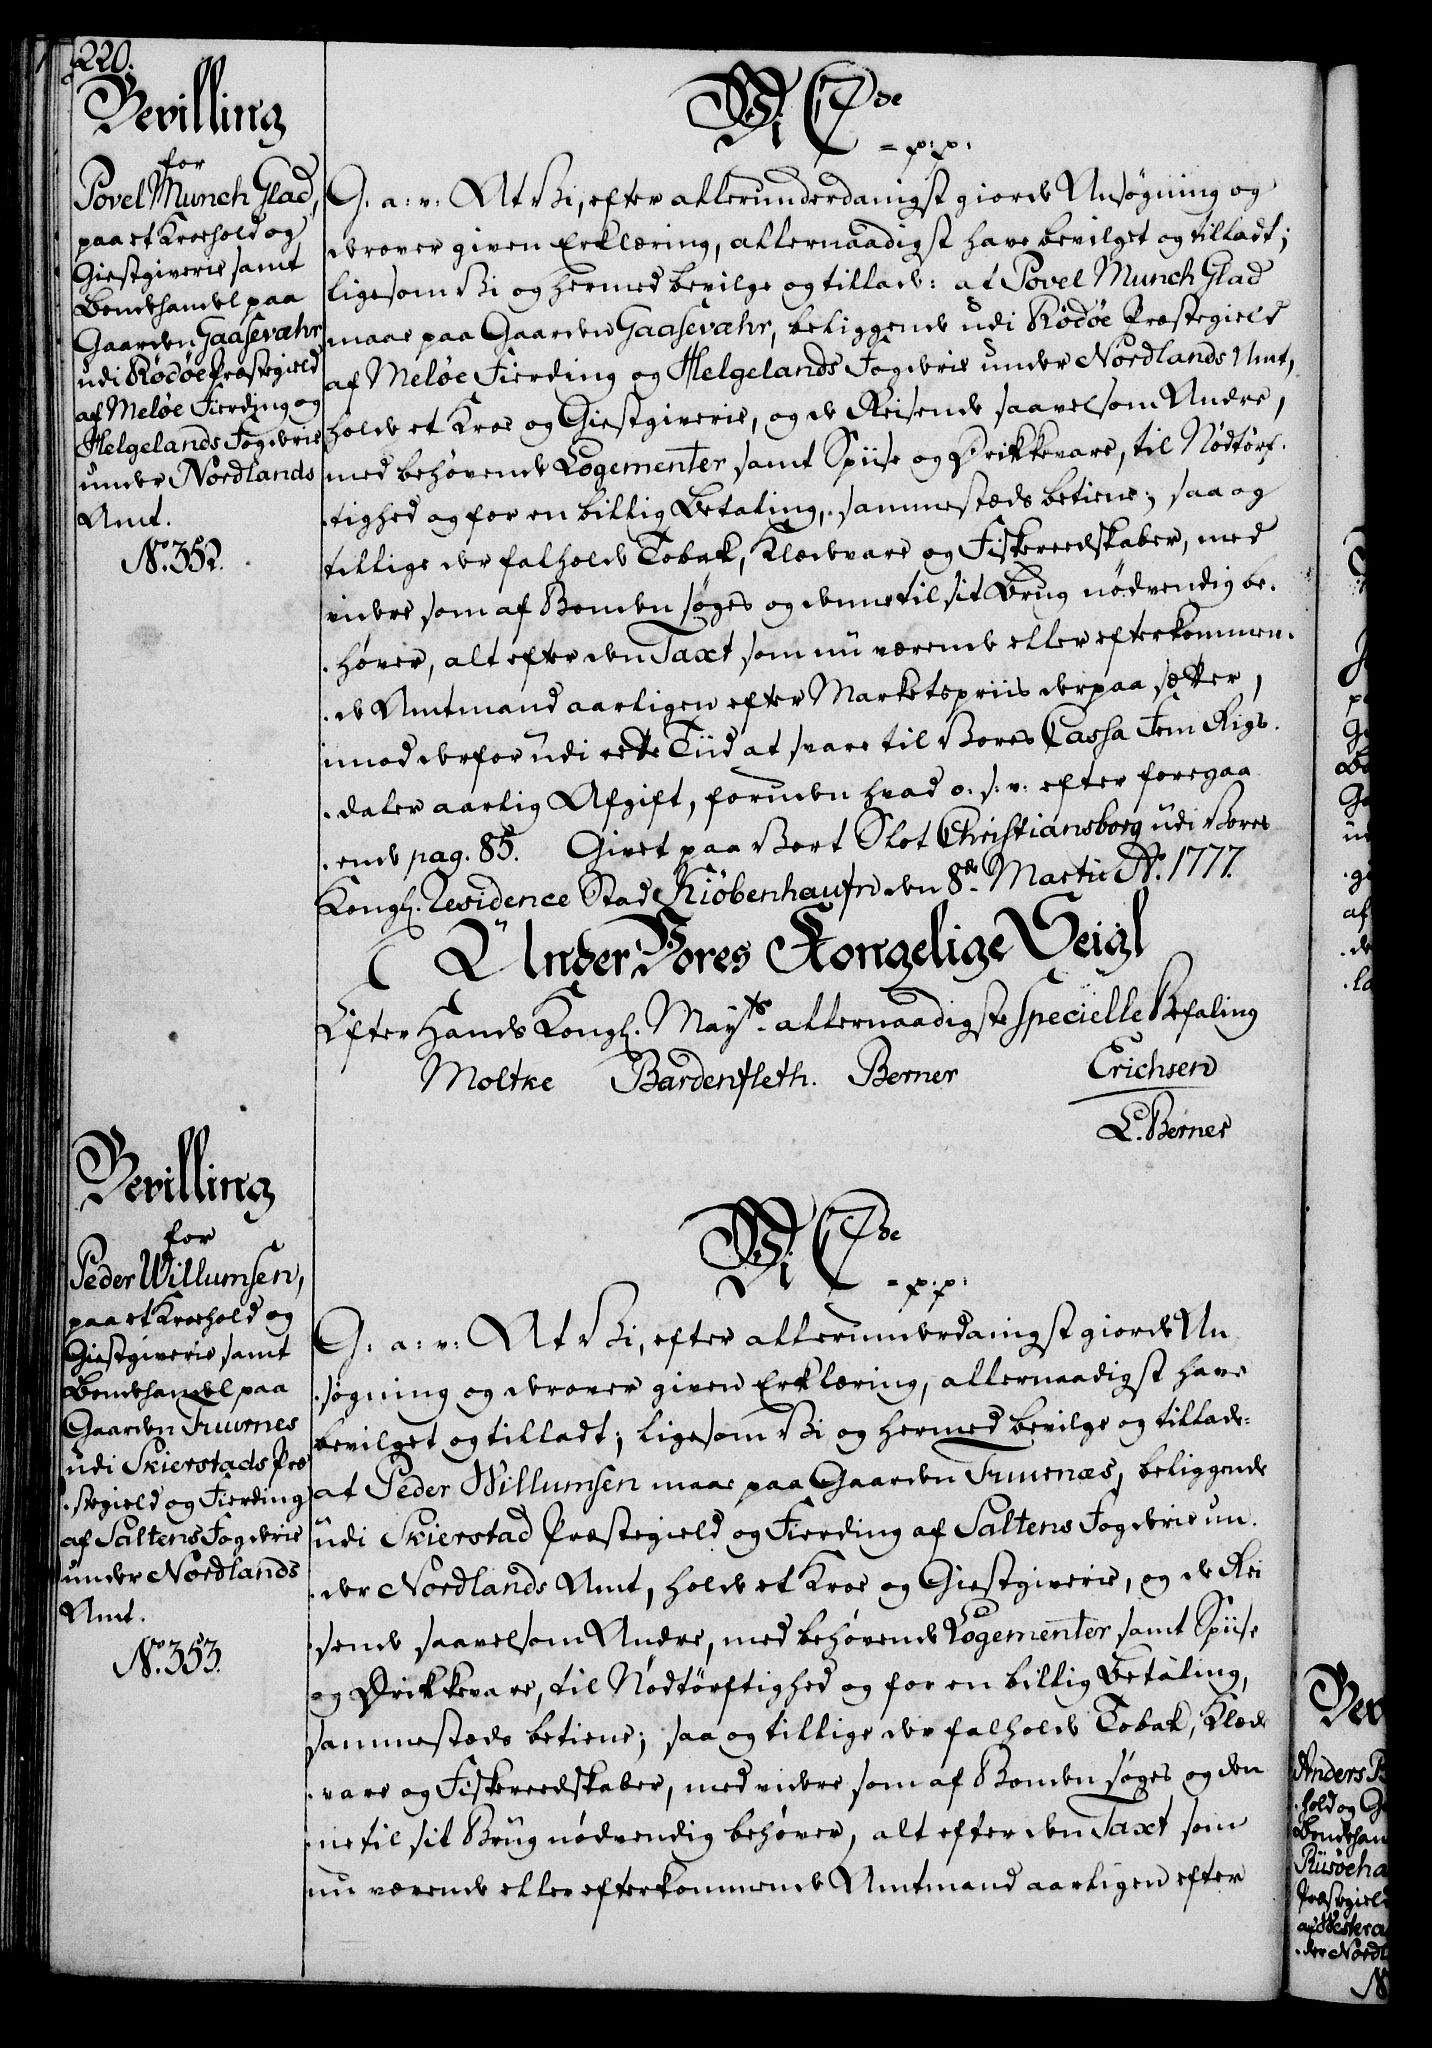 220.
Bevilling
for
Povel Munch Glad,
paa et Kroehold og
Giestgiverie samt
Bondehandel paa
Gaarden Gaasevæhr
udi Rödöe Præstegield
af Meløe Fierding og
Helgelands Fogderie
under Nordlands
Amt.
No. 352.
Vi C 7de
= p: p:
G. a: v: At Vi, efter allerunderdanigst giorde Ansøgning og
derover given Erklæring, allernaadigst have bevilget og tilladt;
ligesom Vi og hermed bevilge og tillade: at Povel Munch Glad
maae paa Gaarden Gaasevæhr, beliggende udi Rödöe Præstegield
af Meløe Fierding og Helgelands Fogderie under Nordlands Amt,
holde et Kroe og Giestgiverie, og de Reisende saavelsom Andre,
med behøvende Logementer samt Spiise og Drikkevare, til Nödtörf-
tighed og for en billig Betaling, sammestæds betiene; saa og
tillige der falholde Tobak, Klædevare og Fiskereedskaber, med
videre som af Bonden søges og denne til sit Brug nödvendig be-
høver, alt efter den Taxt som nu værende eller efterkommen-
de Amtmand aarligen efter Marketspriis derpaa sætter,
imod derfor udi rette Tiid at svare til Vores Cassa Fem Rigs-
daler aarlig Afgift, foruden hvad o. s. v. efter foregaa
ende pag. 85. Givet paa Vort Slot Christiansborg udi Vores
Kongl. Residence Stad Kiöbenhaufn den 8de Martii Ao. 1777.
Under Vores Kongelige Seigl
Efter Hands Kongl. Mayts. allernaadigste specielle Befaling
Moltke Bardenfleth. Berner Erichsen
L. Berner
Bevilling
for
Peder Willumsen,
paa et Kroehold og
Giestgiverie samt
Bondehandel paa
Gaarden Fuurnes
udi Skierstads Præ
stegield og Fierding
af Saltens Fogderie
under Nordlands
Amt.
No. 353.
Vi C 7de
= p: p:
G: a: v: At Vi, efter allerunderdanigst giorde An
søgning og derover given Erklæring, allernaadigst have
bevilget og tilladt; ligesom Vi og hermed bevilge og tillade:
at Peder Willumsen maae paa Gaarden Fuurnæs, beliggende
udi Skierstad Præstegield og Fierding af Saltens Fogderie un-
der Nordlands Amt, holde et Kroe og Giestgiverie, og de Rei
sende saavelsom Andre, med behøvende Logementer samt Spiise
og Drikkevare, til Nödtörftighed og for en billig Betaling,
sammestæds betiene; saa og tillige der falholde Tobak, Klæde
vare og Fiskereedskaber, med videre som af Bonden søges og den
ne til sit Brug nødvendig behøver, alt efter den Taxt som
nu værende eller efterkommende Amtmand aarligen efter